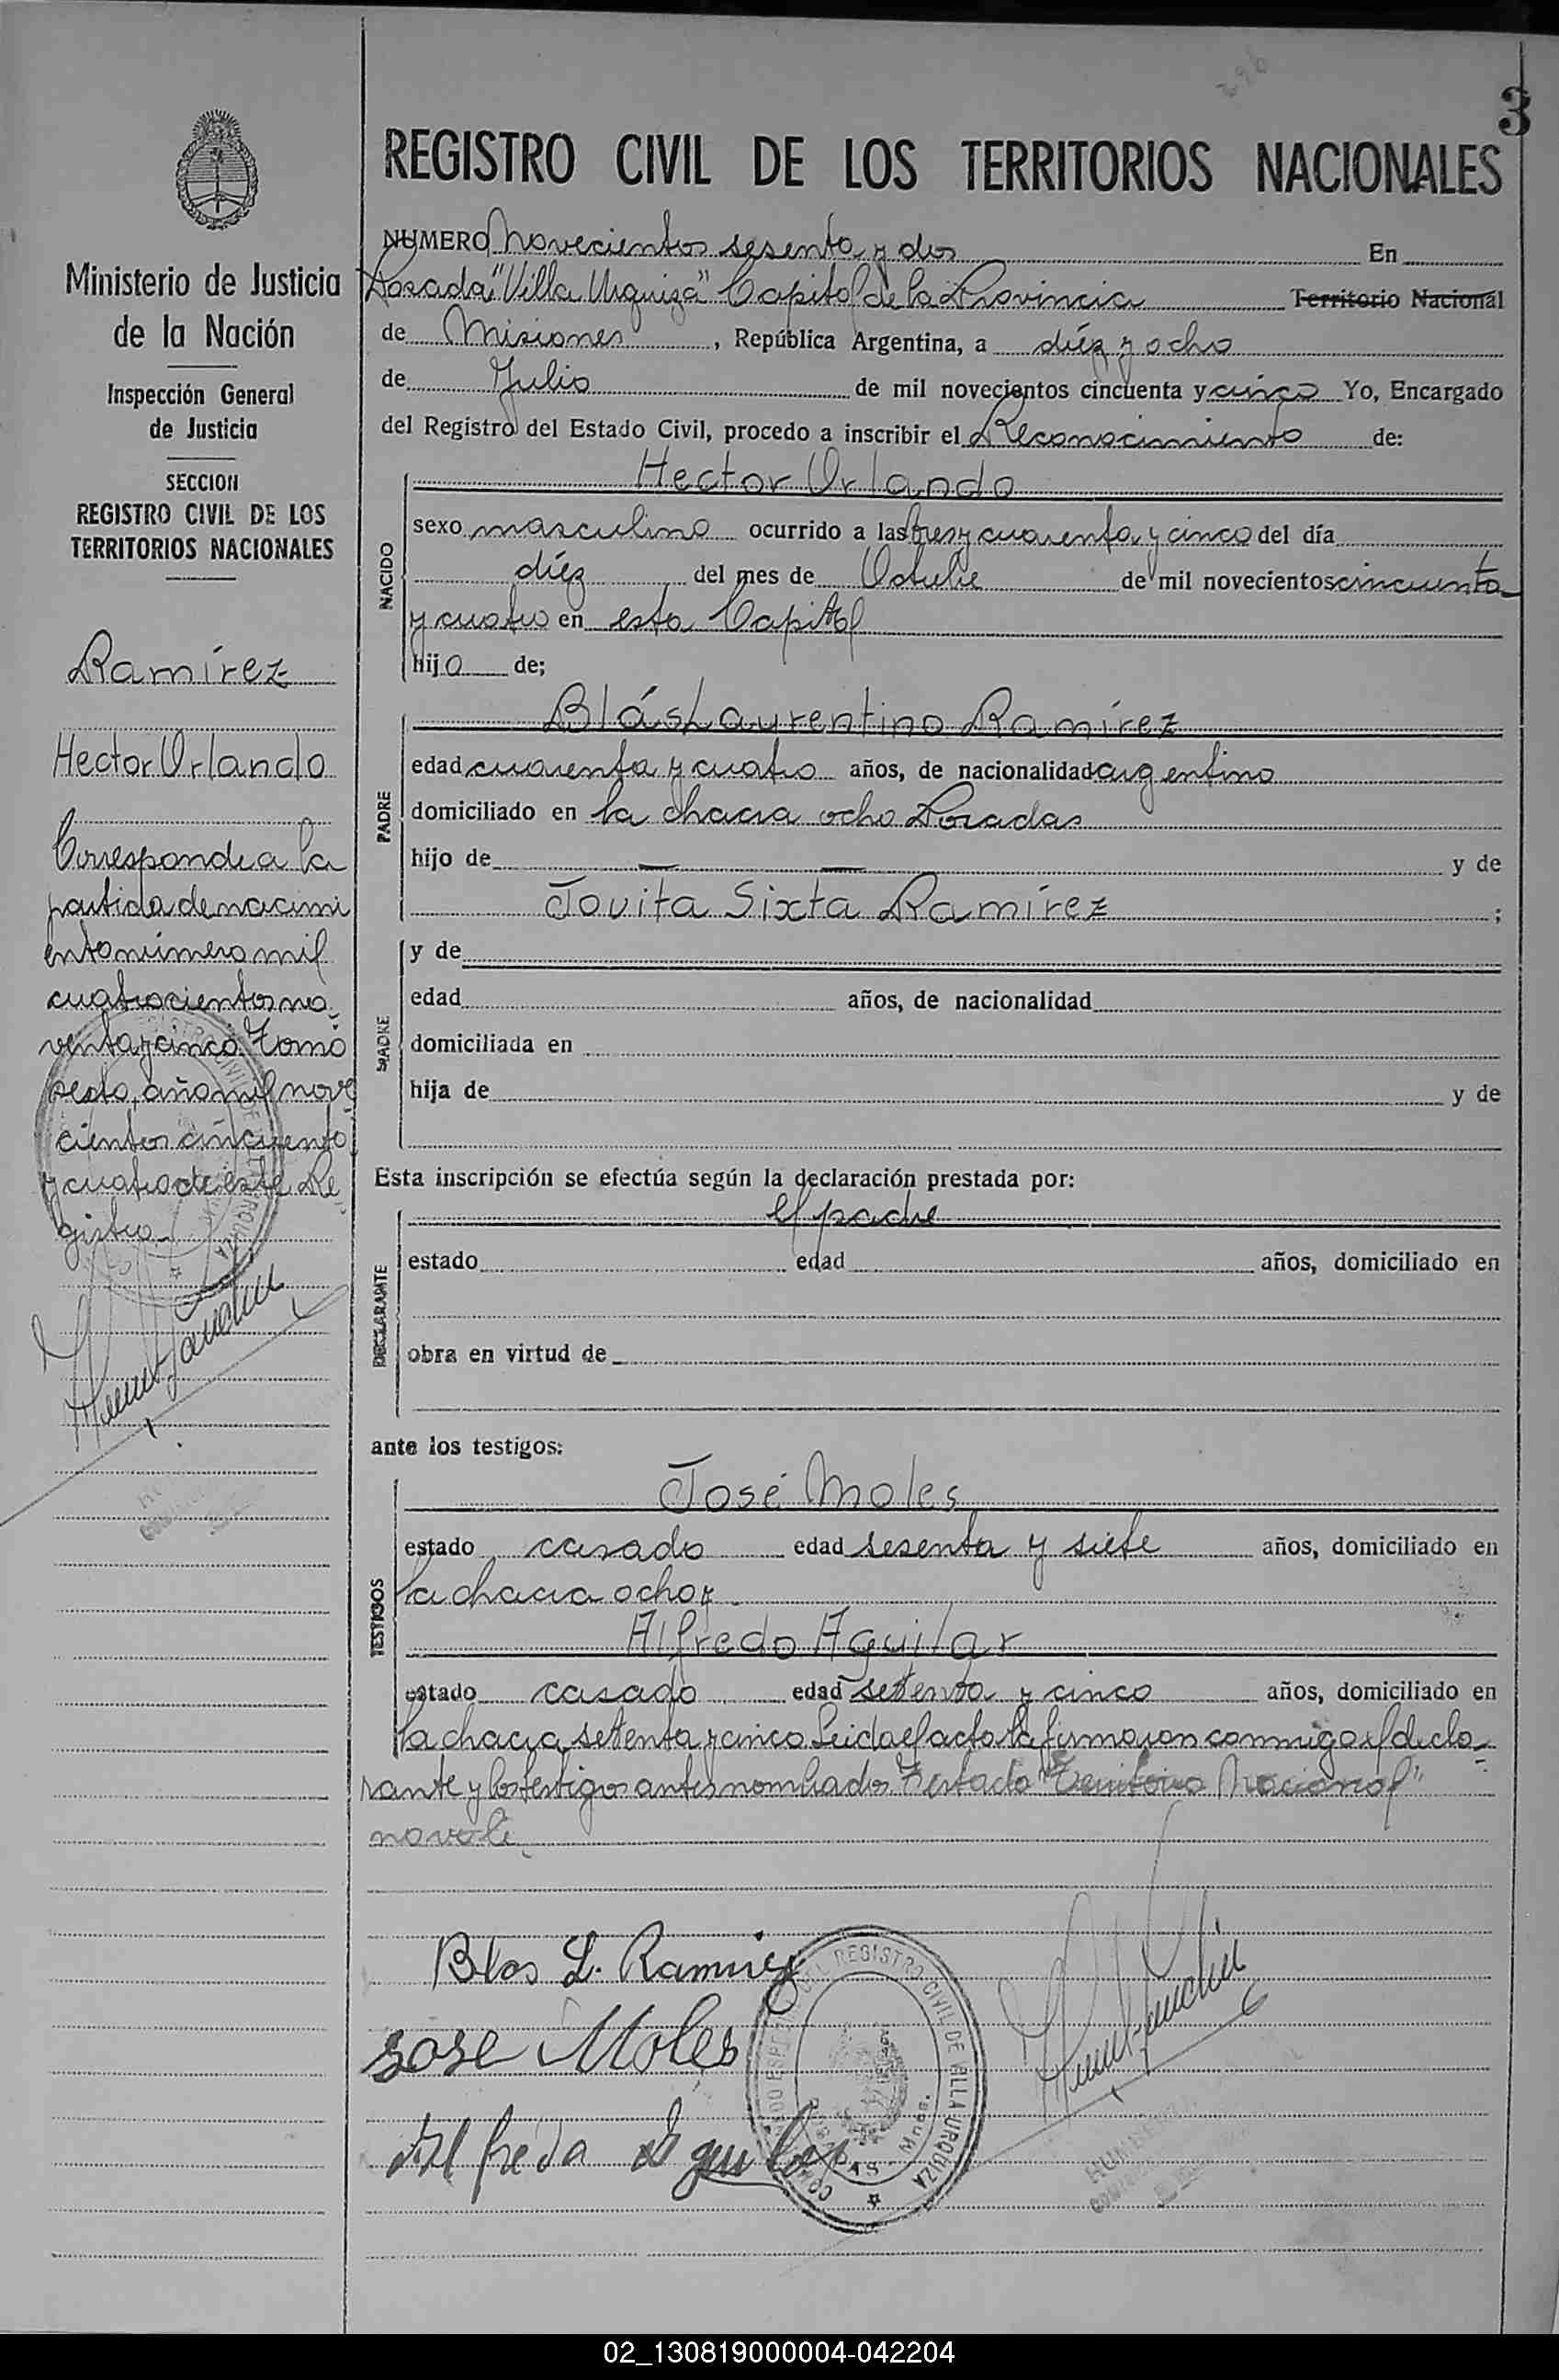 296
3
REGISTRO CIVIL DE LOS TERRITORIOS NACIONALES
Ministerio de Justicia
de la Nación
Inspección General
de Justicia
SECCION
REGISTRO CIVIL DE LOS
TERRITORIOS NACIONALES
Ramírez
Hector Orlando
Corresponde a la
partida de nacimi
ento número mil
cuatrocientos no-
venta y cinco. Tomo
sesto, año mil nove
cientos cincuenta
y cuatro de este Re-
gistro.
NUMERO novecientos sesenta y dos En
Posadas "Villa Urquiza" Capital de la Provincia Territorio Nacional
de Misiones, República Argentina, a diéz y ocho
de Julio de mil novecientos cincuenta y cinco Yo, Encargado
del Registro del Estado Civil, procedo a inscribir el Reconocimiento de:
NACIDO
Hector Orlando
sexo masculino ocurrido a las tres y cuarenta y cinco del día
diéz del mes de Octubre de mil novecientos cincuenta
y cuatro en esta Capital
hijo de;
PADRE
Blás Laurentino Ramírez
edad cuarenta y cuatro años, de nacionalidad argentino
domiciliado en la chacra ocho Posadas
hijo de — — y de
Jovita Sixta Ramírez ;
MADRE
y de
edad años, de nacionalidad
domiciliada en
hija de y de
Esta inscripción se efectúa según la declaración prestada por:
DECLARANTE
el padre
estado edad años, domiciliado en
obra en virtud de
ante los testigos:
TESTIGOS
José Moles
estado casado edad sesenta y siete años, domiciliado en
la chacra ocho y
Alfredo Aguilar
estado casado edad setenta y cinco años, domiciliado en
la chacra setenta y cinco. Leida el acta la firmaron conmigo el decla-
rante y los testigos antes nombrados. Testado "Territorio Nacional"
no vale.
Blas L. Ramirez
Jose Moles
Alfredo Aguilar
REGISTRO CIVIL DE VILLA URQUIZA
POSADAS - Mnes.
02_130819000004-042204